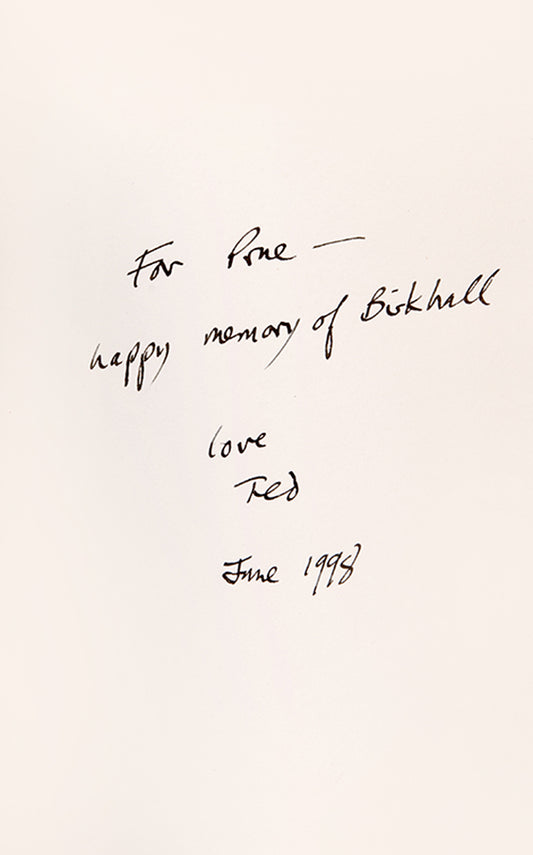 For Prue —
happy memory of Birkhall
love
Ted
June 1998